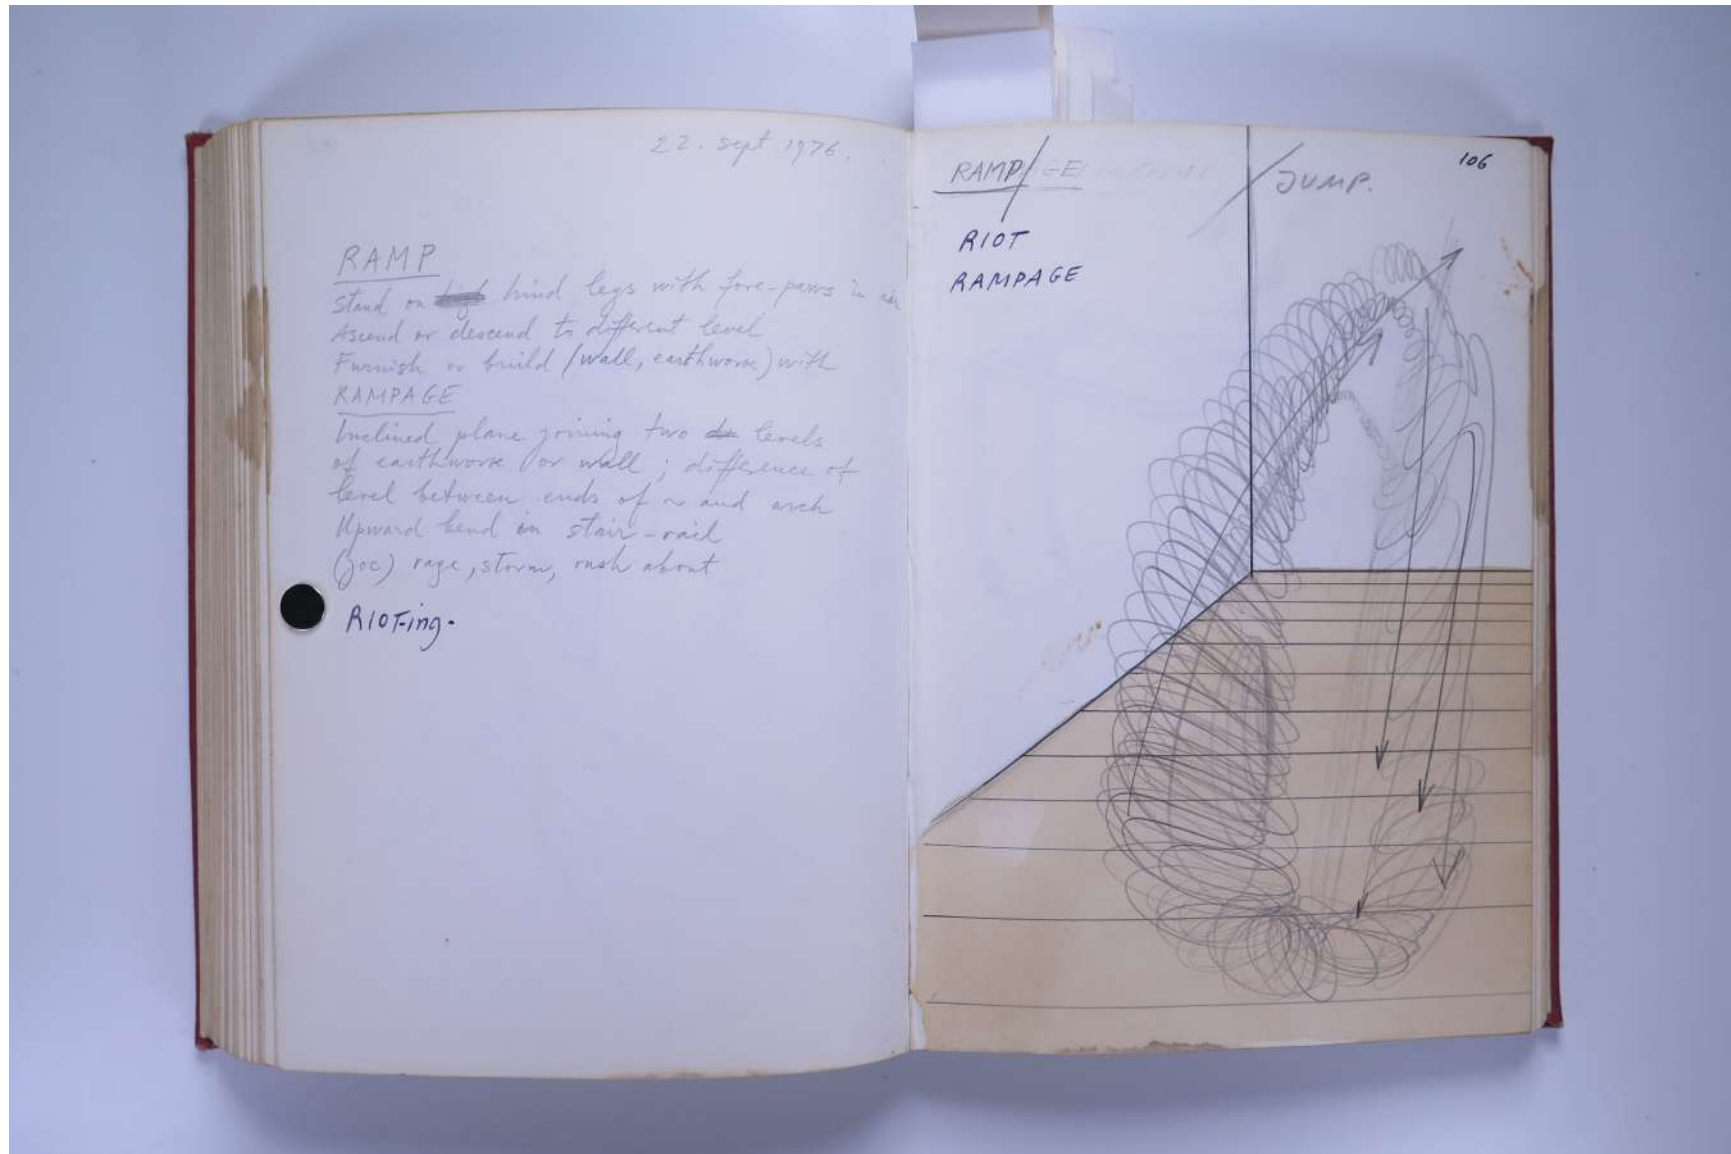 22. sept. 1976.
RAMP
Stand on hind legs with fore-paws in air
Ascend or descend to different level
Furnish or build (wall, earthwork) with
RAMPAGE
Inclined plane joining two levels
of earthwork or wall; difference of
level between ends of ~ and arch
Upward bend in stair-rail
(joc) rage, storm, rush about
RIOT-ing.
RAMP/GE
RIOT
RAMPAGE
/JUMP.
106